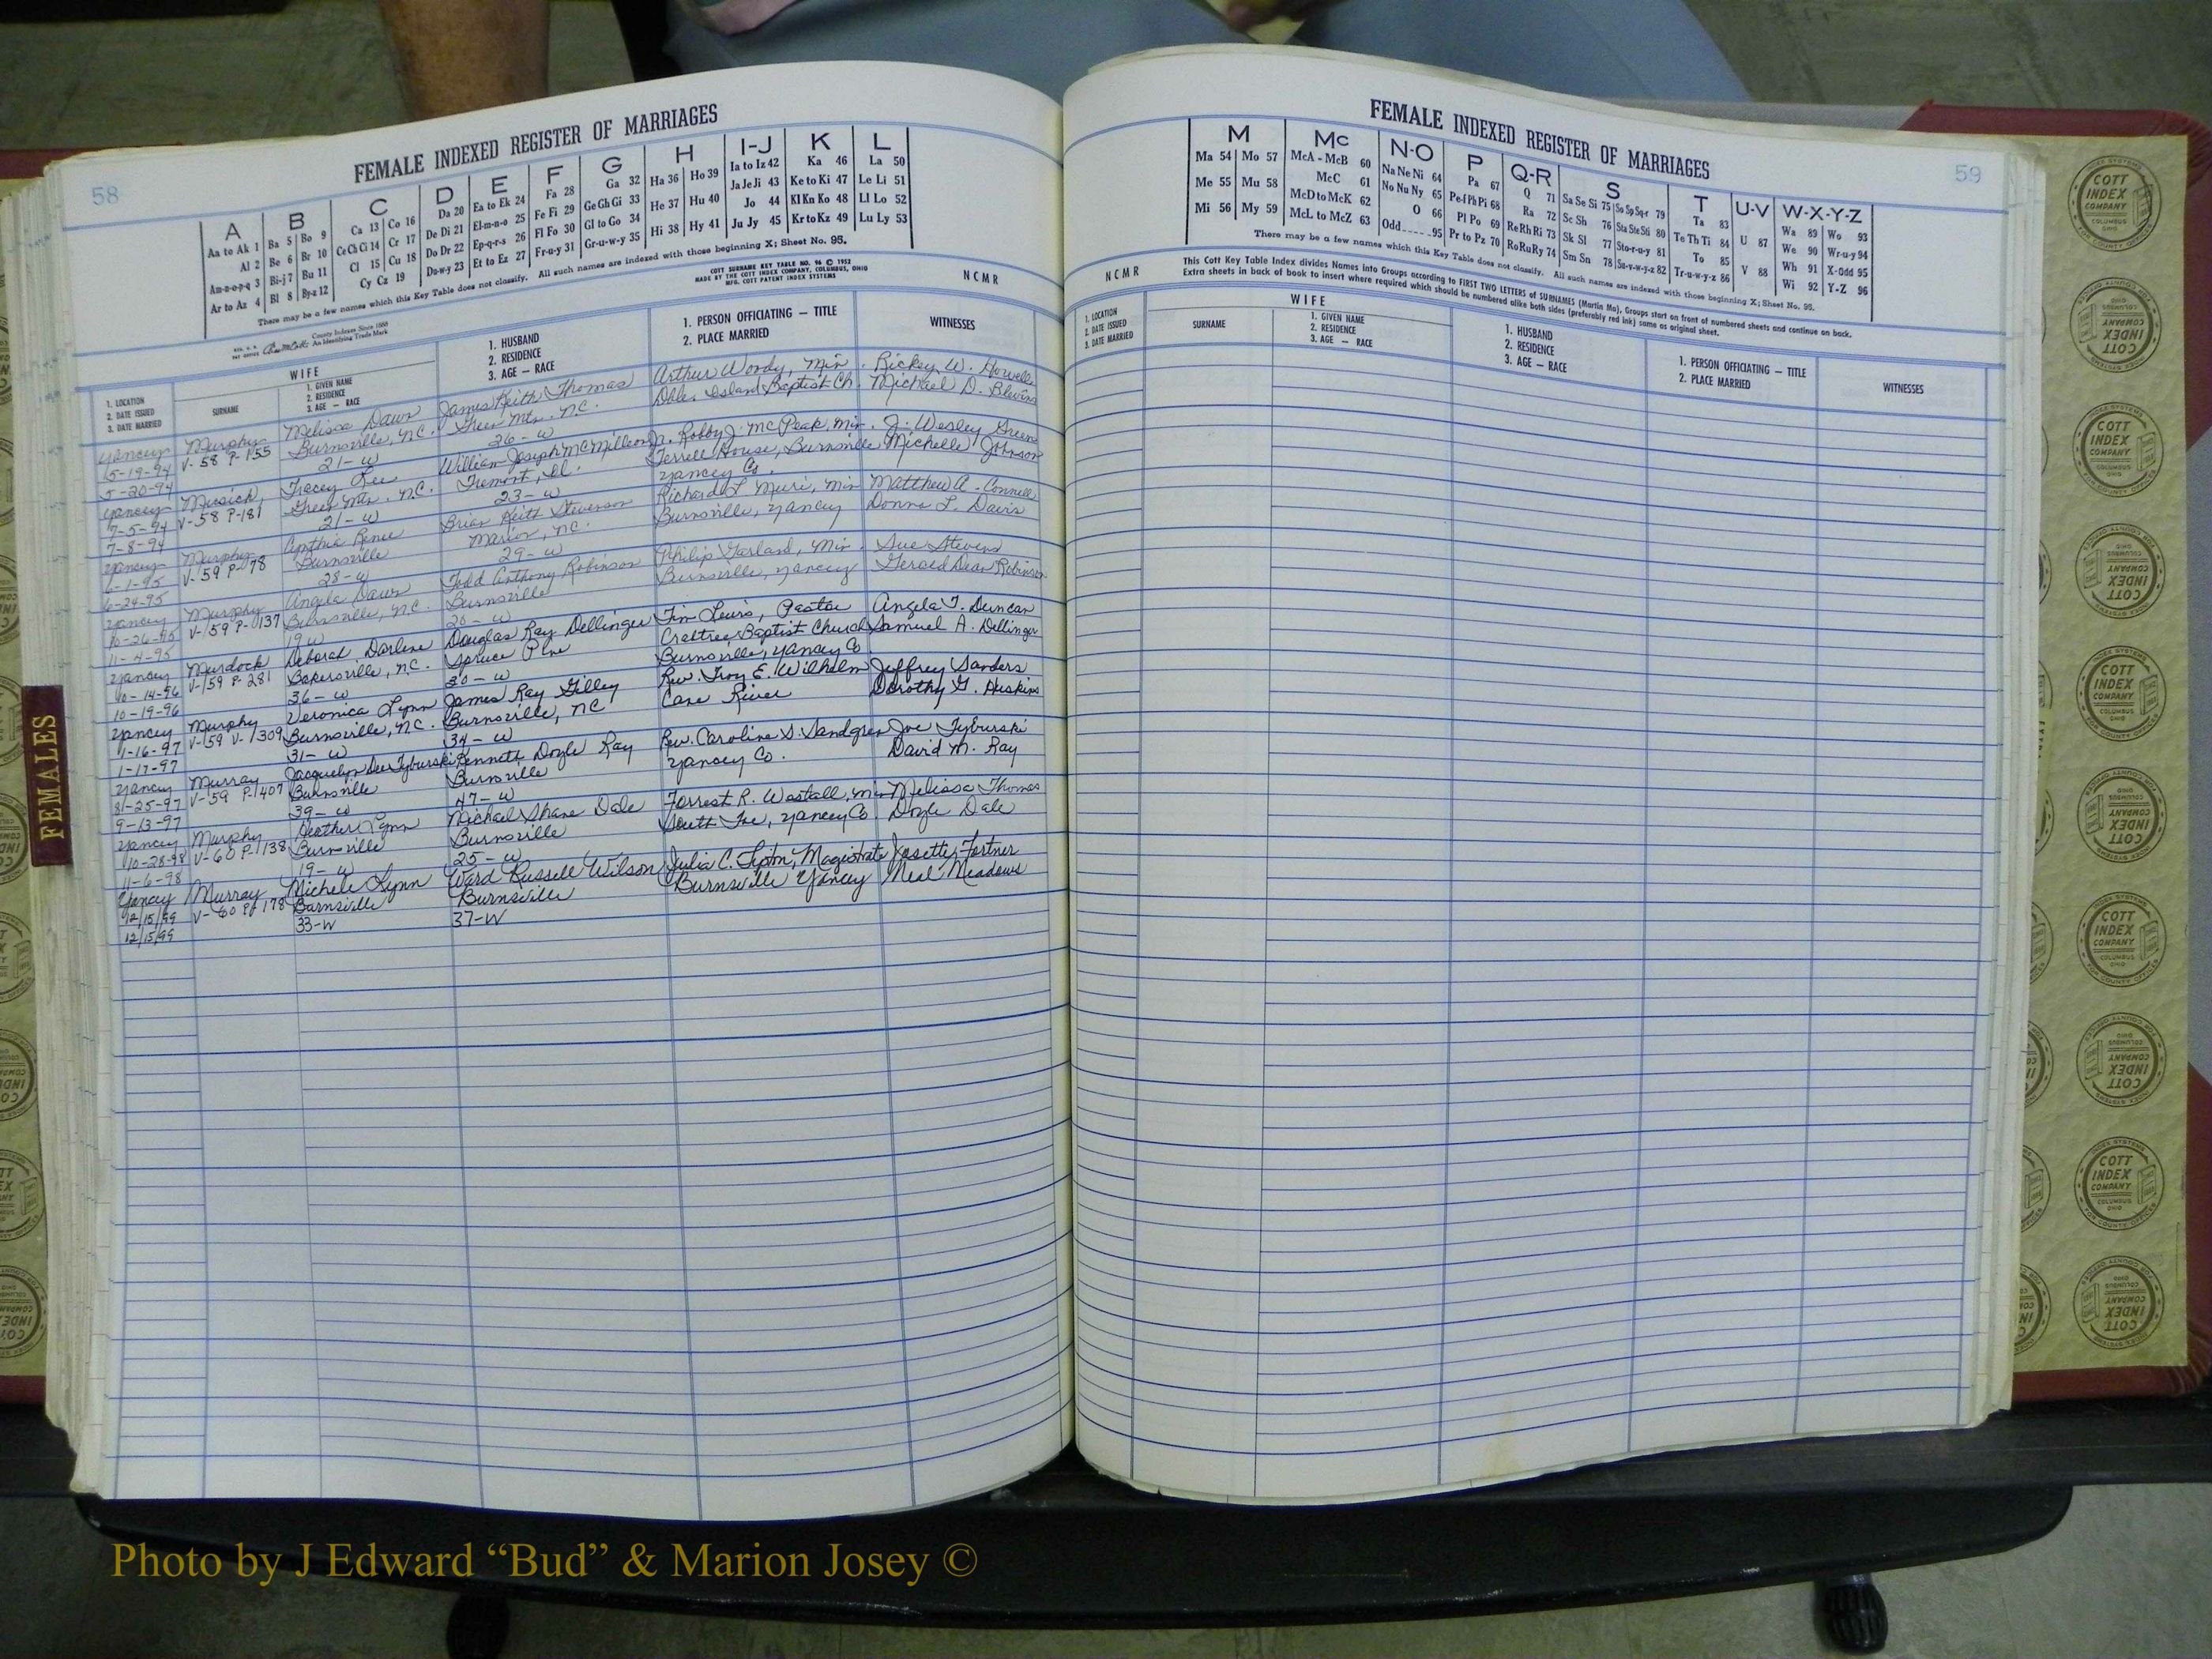 58
FEMALE INDEXED REGISTER OF MARRIAGES
A B C D E F G H I-J K L
Aa to Ak 1 Ba 5 Bo 9 Ca 13 Co 16 Da 20 Ea to Ek 24 Fa 28 Ga 32 Ha 36 Ho 39 Ia to Iz 42 Ka 46 La 50
Al 2 Be 6 Br 10 Ce Ch Ci 14 Cr 17 De Di 21 El-m-n-o 25 Fe Fi 29 Ge Gh Gi 33 He 37 Hu 40 Ja Je Ji 43 Ke to Ki 47 Le Li 51
Am-n-o-p-q 3 Bi-j 7 Bu 11 Cl 15 Cu 18 Do Dr 22 Ep-q-r-s 26 Fl Fo 30 Gl to Go 34 Hi 38 Hy 41 Jo 44 Kl Kn Ko 48 Ll Lo 52
Ar to Az 4 Bl 8 By-z 12 Cy Cz 19 Du-w-y 23 Et to Ez 27 Fr-u-y 31 Gr-u-w-y 35 Ju Jy 45 Kr to Kz 49 Lu Ly 53
There may be a few names which this Key Table does not classify. All such names are indexed with those beginning X; Sheet No. 95.
County Indexes Since 1888
An Identifying Trade Mark
COTT SURNAME KEY TABLE NO. 96 © 1952
MADE BY THE COTT INDEX COMPANY, COLUMBUS, OHIO
MFG. COTT PATENT INDEX SYSTEMS
NCMR
1. LOCATION
2. DATE ISSUED
3. DATE MARRIED
WIFE
SURNAME
1. GIVEN NAME
2. RESIDENCE
3. AGE — RACE
1. HUSBAND
2. RESIDENCE
3. AGE — RACE
1. PERSON OFFICIATING — TITLE
2. PLACE MARRIED
WITNESSES
Yancey Murphy Melissa Dawn James Keith Thomas Arthur Woody, Min. Rickey W. Howell
5-19-94 V-58 P-155 Burnsville, N.C. Green Mtn. N.C. Island Baptist Ch. Michael D. Blevins
5-20-94 21-W 26-W
Yancey Musick Tracey Lee William Joseph McMillen Jr. Robby J. McPeak, Min. J. Wesley Green
7-5-94 V-58 P-181 Green Mtn. N.C. Tremont, Ill. Terrell House, Burnsville Michelle Johnson
7-8-94 21-W 23-W Yancey Co.
Yancey Murphy Cynthia Renee Brian Keith Stevenson Richard L. Muri, Min Matthew A. Connell
6-1-95 V-59 P-78 Burnsville Marion, NC. Burnsville, Yancey Donna L. Davis
6-24-95 28-W 29-W
Yancey Murphy Angela Dawn Todd Anthony Robinson Philip Garland, Min. Sue Stevens
10-26-95 V-59 P-137 Burnsville, N.C. Burnsville Burnsville, Yancey Gerald Dean Robinson
11-4-95 19W 20-W
Yancey Murdock Deborah Darlene Douglas Ray Dellinger Tim Lewis, Pastor Angela T. Duncan
10-14-96 V-59 P-281 Bakersville, N.C. Spruce Pine Crabtree Baptist Church Samuel A. Dellinger
10-19-96 36-W 30-W Burnsville, Yancey Co
Yancey Murphy Veronica Lynn James Ray Gilley Rev. Troy E. Wilhelm Jeffrey Sanders
1-16-97 V-59 V-309 Burnsville, N.C. Burnsville, NC Cane River Dorothy G. Huskins
1-17-97 31-W 34-W
Yancey Murray Jacquelyn Dee Tyburski Kennett Doyle Ray Rev. Caroline S. Sandgren Joe Tyburski
8-25-97 V-59 P-407 Burnsville Burnsville Yancey Co. David M. Ray
9-13-97 39-W 47-W
Yancey Murphy Heather Lynn Michael Shane Dale Forrest R. Westall, Min Melissa Thomas
10-28-98 V-60 P-138 Burnsville Burnsville South Toe, Yancey Co. Doyle Dale
11-6-98 19-W 25-W
Yancey Murray Michele Lynn Ward Russell Wilson Julia C. Tipton, Magistrate Josette Fortner
12/15/99 V-60 P-178 Burnsville Burnsville Burnsville Yancey Neal Meadows
12/15/99 33-W 37-W
59
FEMALE INDEXED REGISTER OF MARRIAGES
M Mc N-O P Q-R S T U-V W-X-Y-Z
Ma 54 Mo 57 McA - McB 60 Na Ne Ni 64 Pa 67 Q 71 Sa Se Si 75 So Sp Sq-r 79 Ta 83 U 87 Wa 89 Wo 93
Me 55 Mu 58 McC 61 No Nu Ny 65 Pe-f Ph Pi 68 Ra 72 Sc Sh 76 Sta Ste Sti 80 Te Th Ti 84 V 88 We 90 Wr-u-y 94
Mi 56 My 59 McD to McK 62 O 66 Pl Po 69 Re Rh Ri 73 Sk Sl 77 Sto-r-u-y 81 To 85 Wh 91 X-Odd 95
McL to McZ 63 Odd 95 Pr to Pz 70 Ro Ru Ry 74 Sm Sn 78 Su-v-w-y-z 82 Tr-u-w-y-z 86 Wi 92 Y-Z 96
There may be a few names which this Key Table does not classify. All such names are indexed with those beginning X; Sheet No. 95.
NCMR
This Cott Key Table Index divides Names into Groups according to FIRST TWO LETTERS of SURNAMES (Martin Ma), Groups start on front of numbered sheets and continue on back.
Extra sheets in back of book to insert where required which should be numbered alike both sides (preferably red ink) same as original sheet.
1. LOCATION
2. DATE ISSUED
3. DATE MARRIED
WIFE
SURNAME
1. GIVEN NAME
2. RESIDENCE
3. AGE — RACE
1. HUSBAND
2. RESIDENCE
3. AGE — RACE
1. PERSON OFFICIATING — TITLE
2. PLACE MARRIED
WITNESSES
FEMALES
INDEX SYSTEMS
COTT
INDEX
COMPANY
COLUMBUS
OHIO
FOR COUNTY OFFICES
Photo by J Edward “Bud” & Marion Josey ©